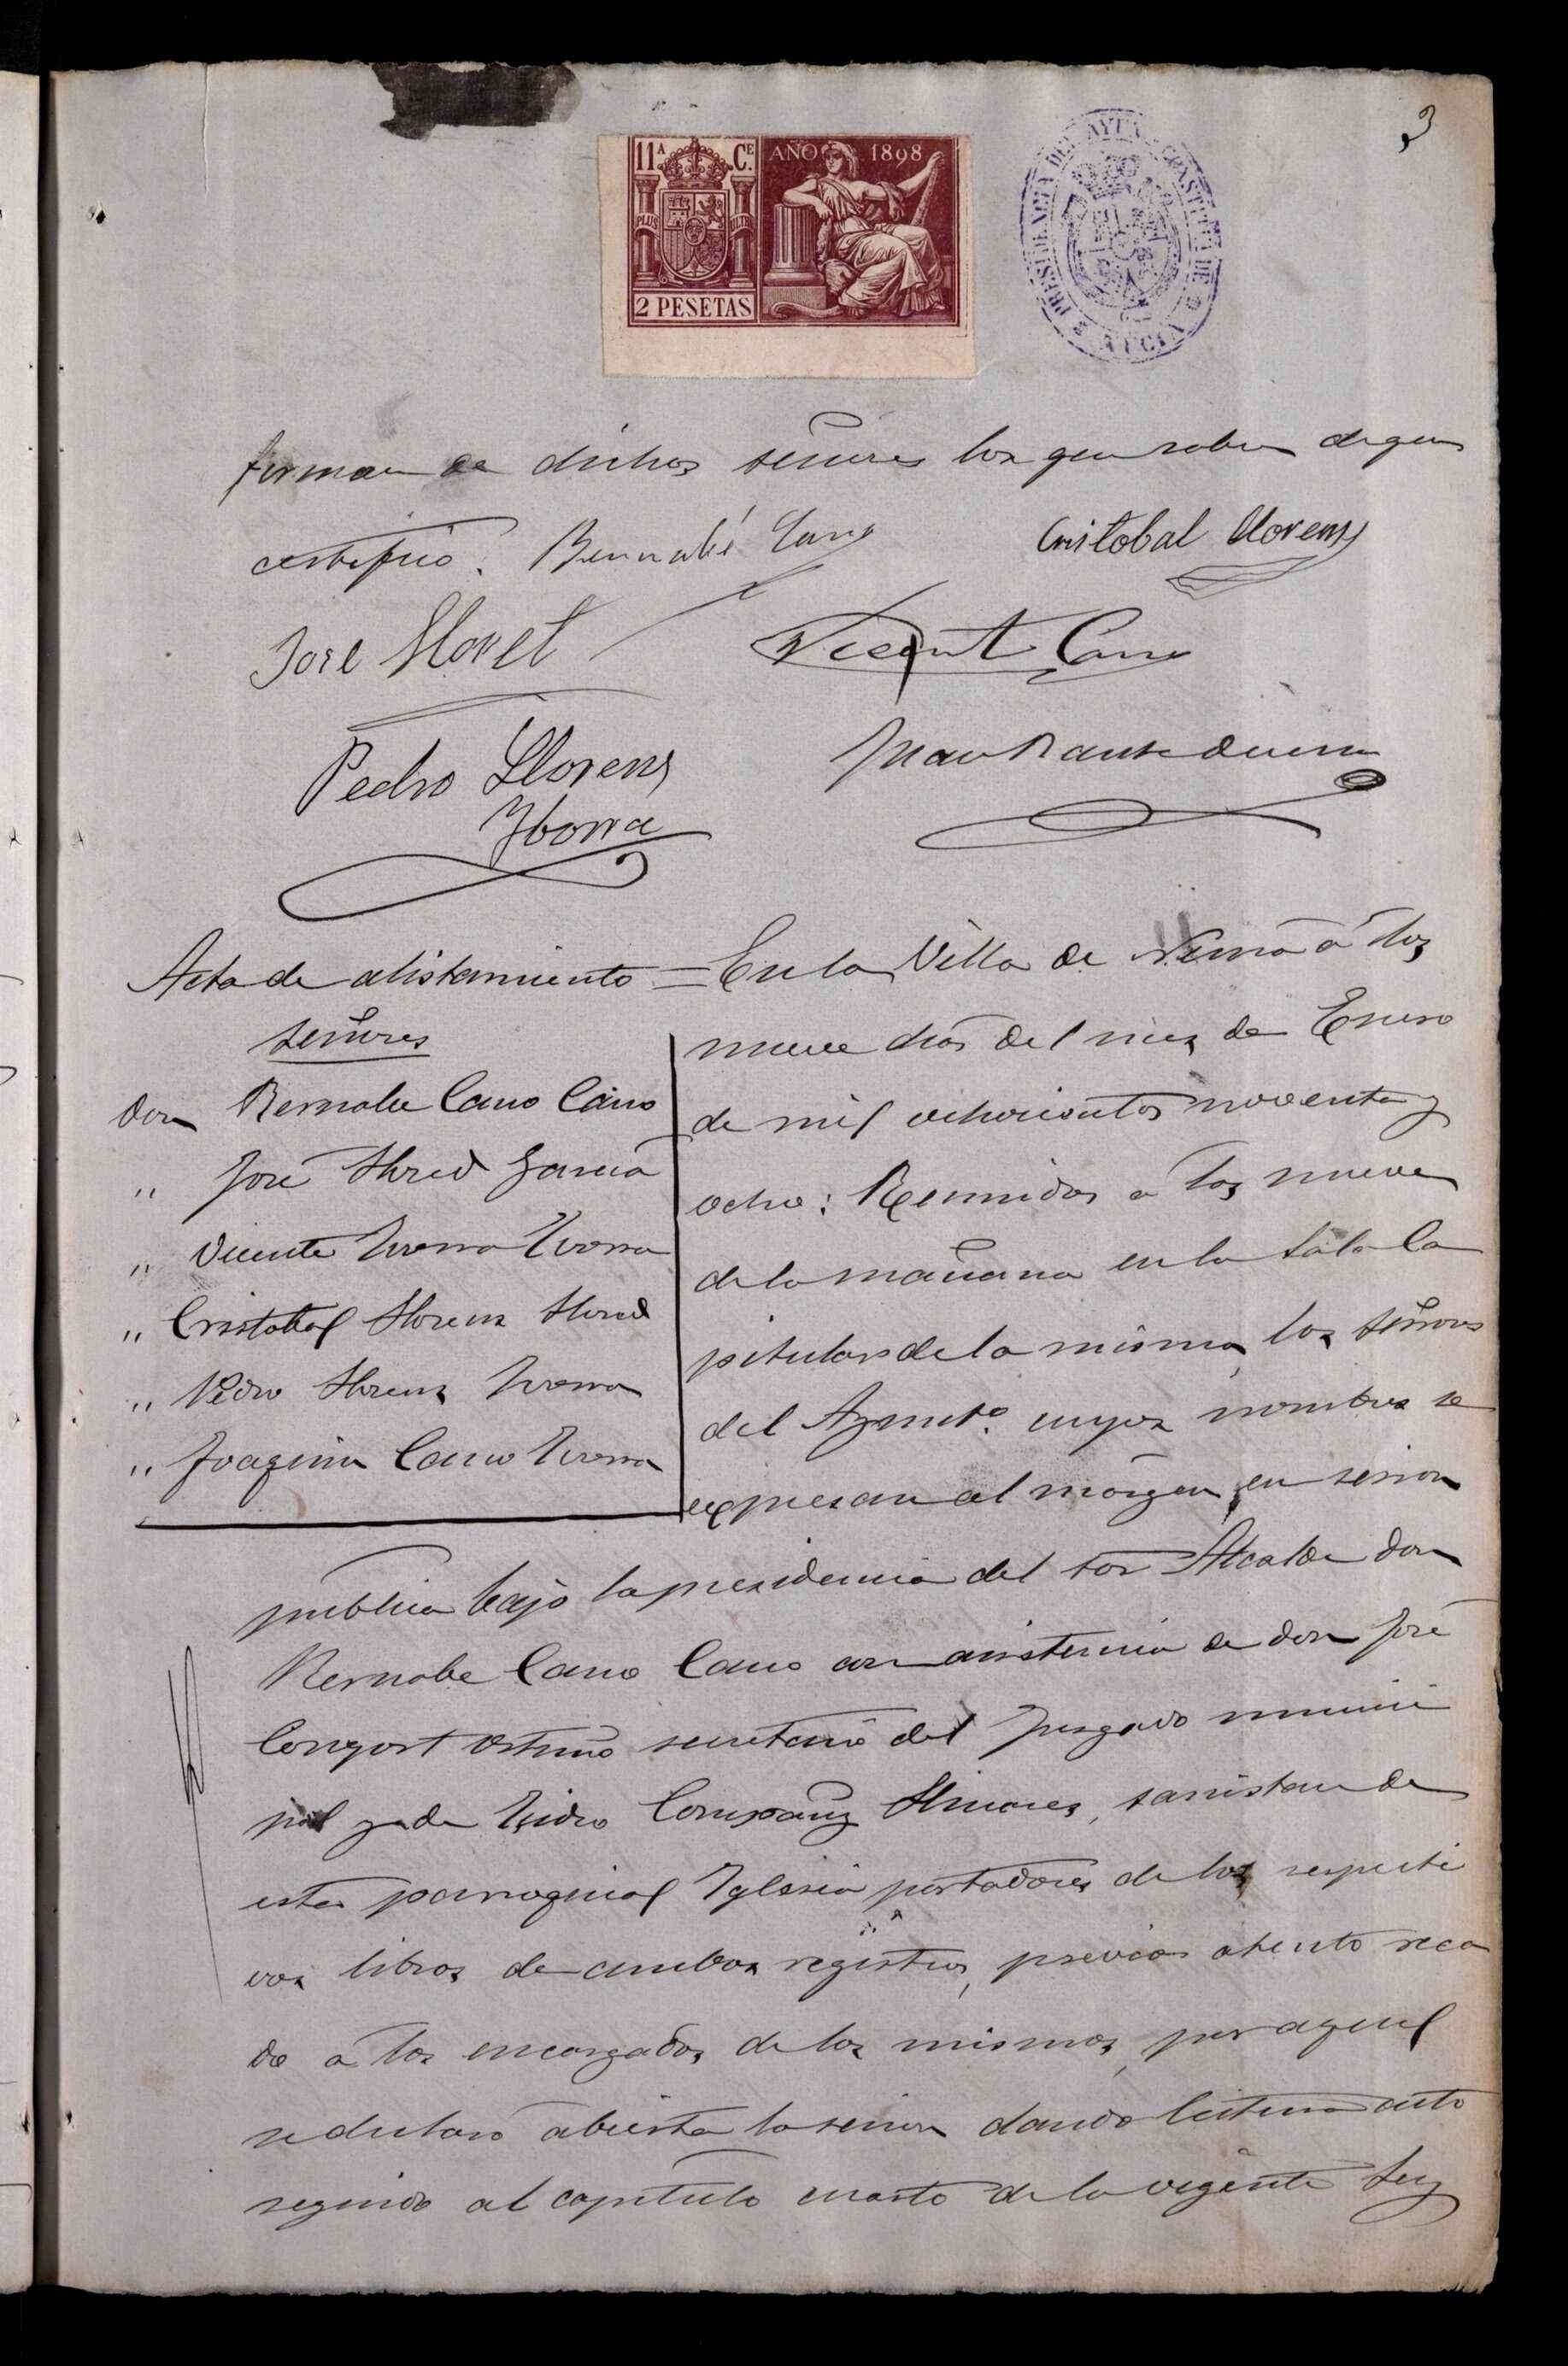 3
11ª Cª.
AÑO 1898
PLUS ULTRA
2 PESETAS
PRESIDENCIA DEL AYTO. CONSTITUL. DE
NUCIA
firman de dichos señores los que saben de que
certifico. Bernabé Cano
Cristobal Llorens
José Lloret
Vicente Cano
Pedro Llorens
Yborra
Juan Bautª
Acta de alistamiento = En la Villa de Nucia á los
señores
Don Bernabe Cano Cano
" José Lloret Garcia
" Vicente Ivorra Ivorra
" Cristobal Llorens Lloret
" Pedro Llorens Ivorra
" Joaquin Cano Ivorra
nueve dias del mes de Enero
de mil ochocientos noventa y
ocho: Reunidos a las nueve
de la mañana en la sala Ca
pitular de la misma, los señores
del Ayuntº. cuyos nombres se
expresan al márgen, en sesion
publica bajo la presidencia del Sor Alcalde don
Bernabe Cano Cano con asistencia de don José
Congost Ortuño secretario del Juzgado munici
pal y de Isidro Company Llinares, sacristan de
esta parroquial Iglesia portadores de los respecti
vos libros de ambos registros, previo atento reca
do a los encargados de los mismos, por aquel
se declaró abierta la sesion dando lectura acto
seguido al capitulo cuarto de la vigente Ley